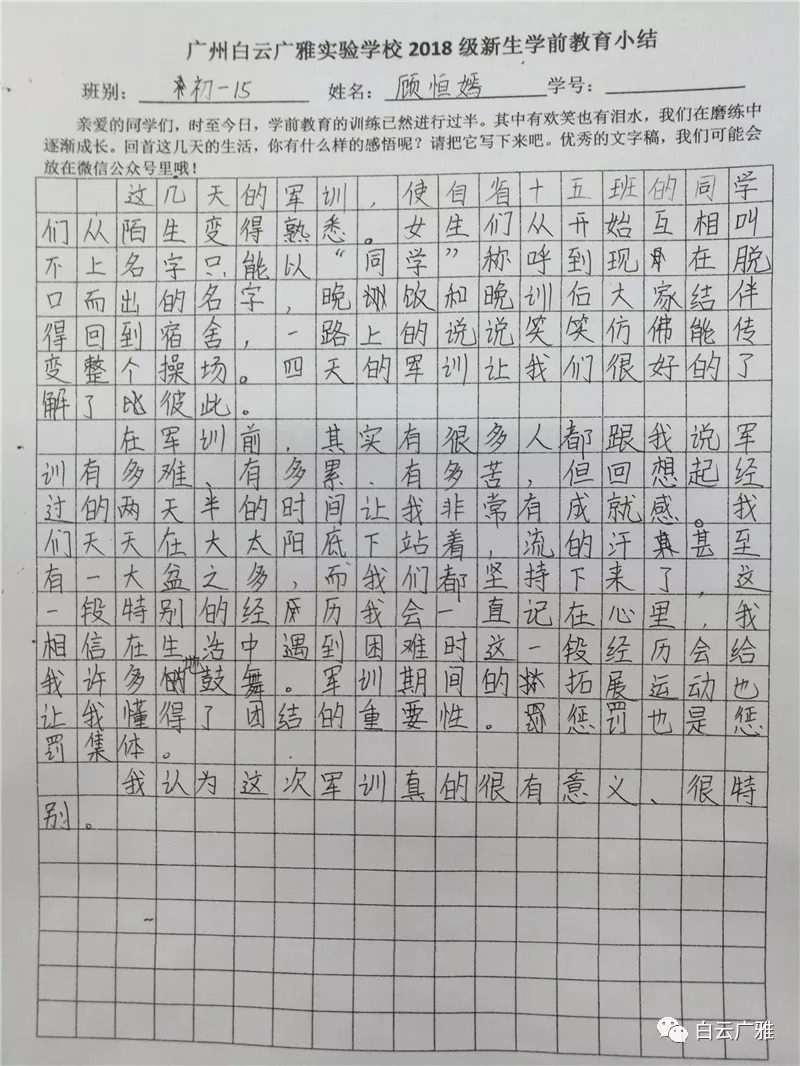 广州白云广雅实验学校2018级新生学前教育小结
班别：初一15 姓名：顾恒嫣 学号：
亲爱的同学们，时至今日，学前教育的训练已然进行过半。其中有欢笑也有泪水，我们在磨练中
逐渐成长。回首这几天的生活，你有什么样的感悟呢？请把它写下来吧。优秀的文字稿，我们可能会
放在微信公众号里哦！
这几天的军训，使自省十五班的同学
们从陌生变得熟悉。女生们从开始互相叫
不上名字只能以“同学”称呼到现在脱
口而出的名字，晚饭和晚训后大家结伴
得回到宿舍，一路上的说说笑笑仿佛能传
变整个操场。四天的军训让我们很好的了
解了彼此。
在军训前，其实有很多人都跟我说军
训有多难、有多累、有多苦，但回想起经
过的两天半的时间让我非常有成就感。我
们天天在大太阳底下站着，流的汗甚至
有一大盆之多，而我们都坚持下来了，这
一段特别的经历我会一直记在心里，我
相信在生活中遇到困难时这一段经历会给
我许多地鼓舞。军训期间的拓展运动也
让我懂得了团结的重要性。惩罚也是惩
罚集体。
我认为这次军训真的很有意义、很特
别。
白云广雅